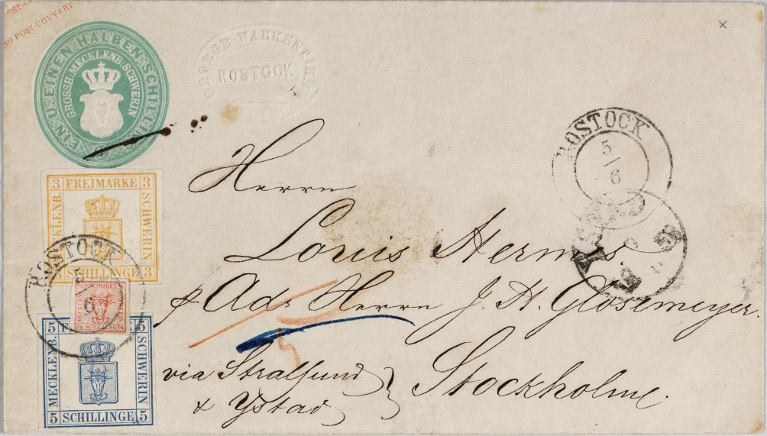 POST-COUVERT
EIN U. EINEN HALBEN SCHILLING
GROSSH. MECKLENB. SCHWERIN
ROSTOCK
ROSTOCK
5
6
Herrn
Louis Hermes.
p Ad: Herrn J. H. Glosemeyer.
via Stralsund
& Ystad
Stockholm.
3 FREIMARKE 3
MECKLENB.
SCHWERIN
3 SCHILLINGE 3
ROSTOCK
5
6
5
5
MECKLENB.
SCHWERIN
5 SCHILLINGE 5